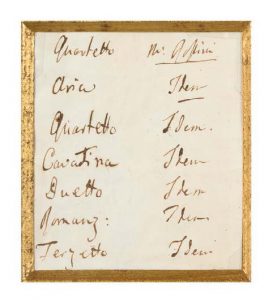 Quartetto Mr. Rossini
Aria Idem
Quartetto Idem.
Cavatina Idem
Duetto Idem
Romanz: Idem.
Terzetto Idem